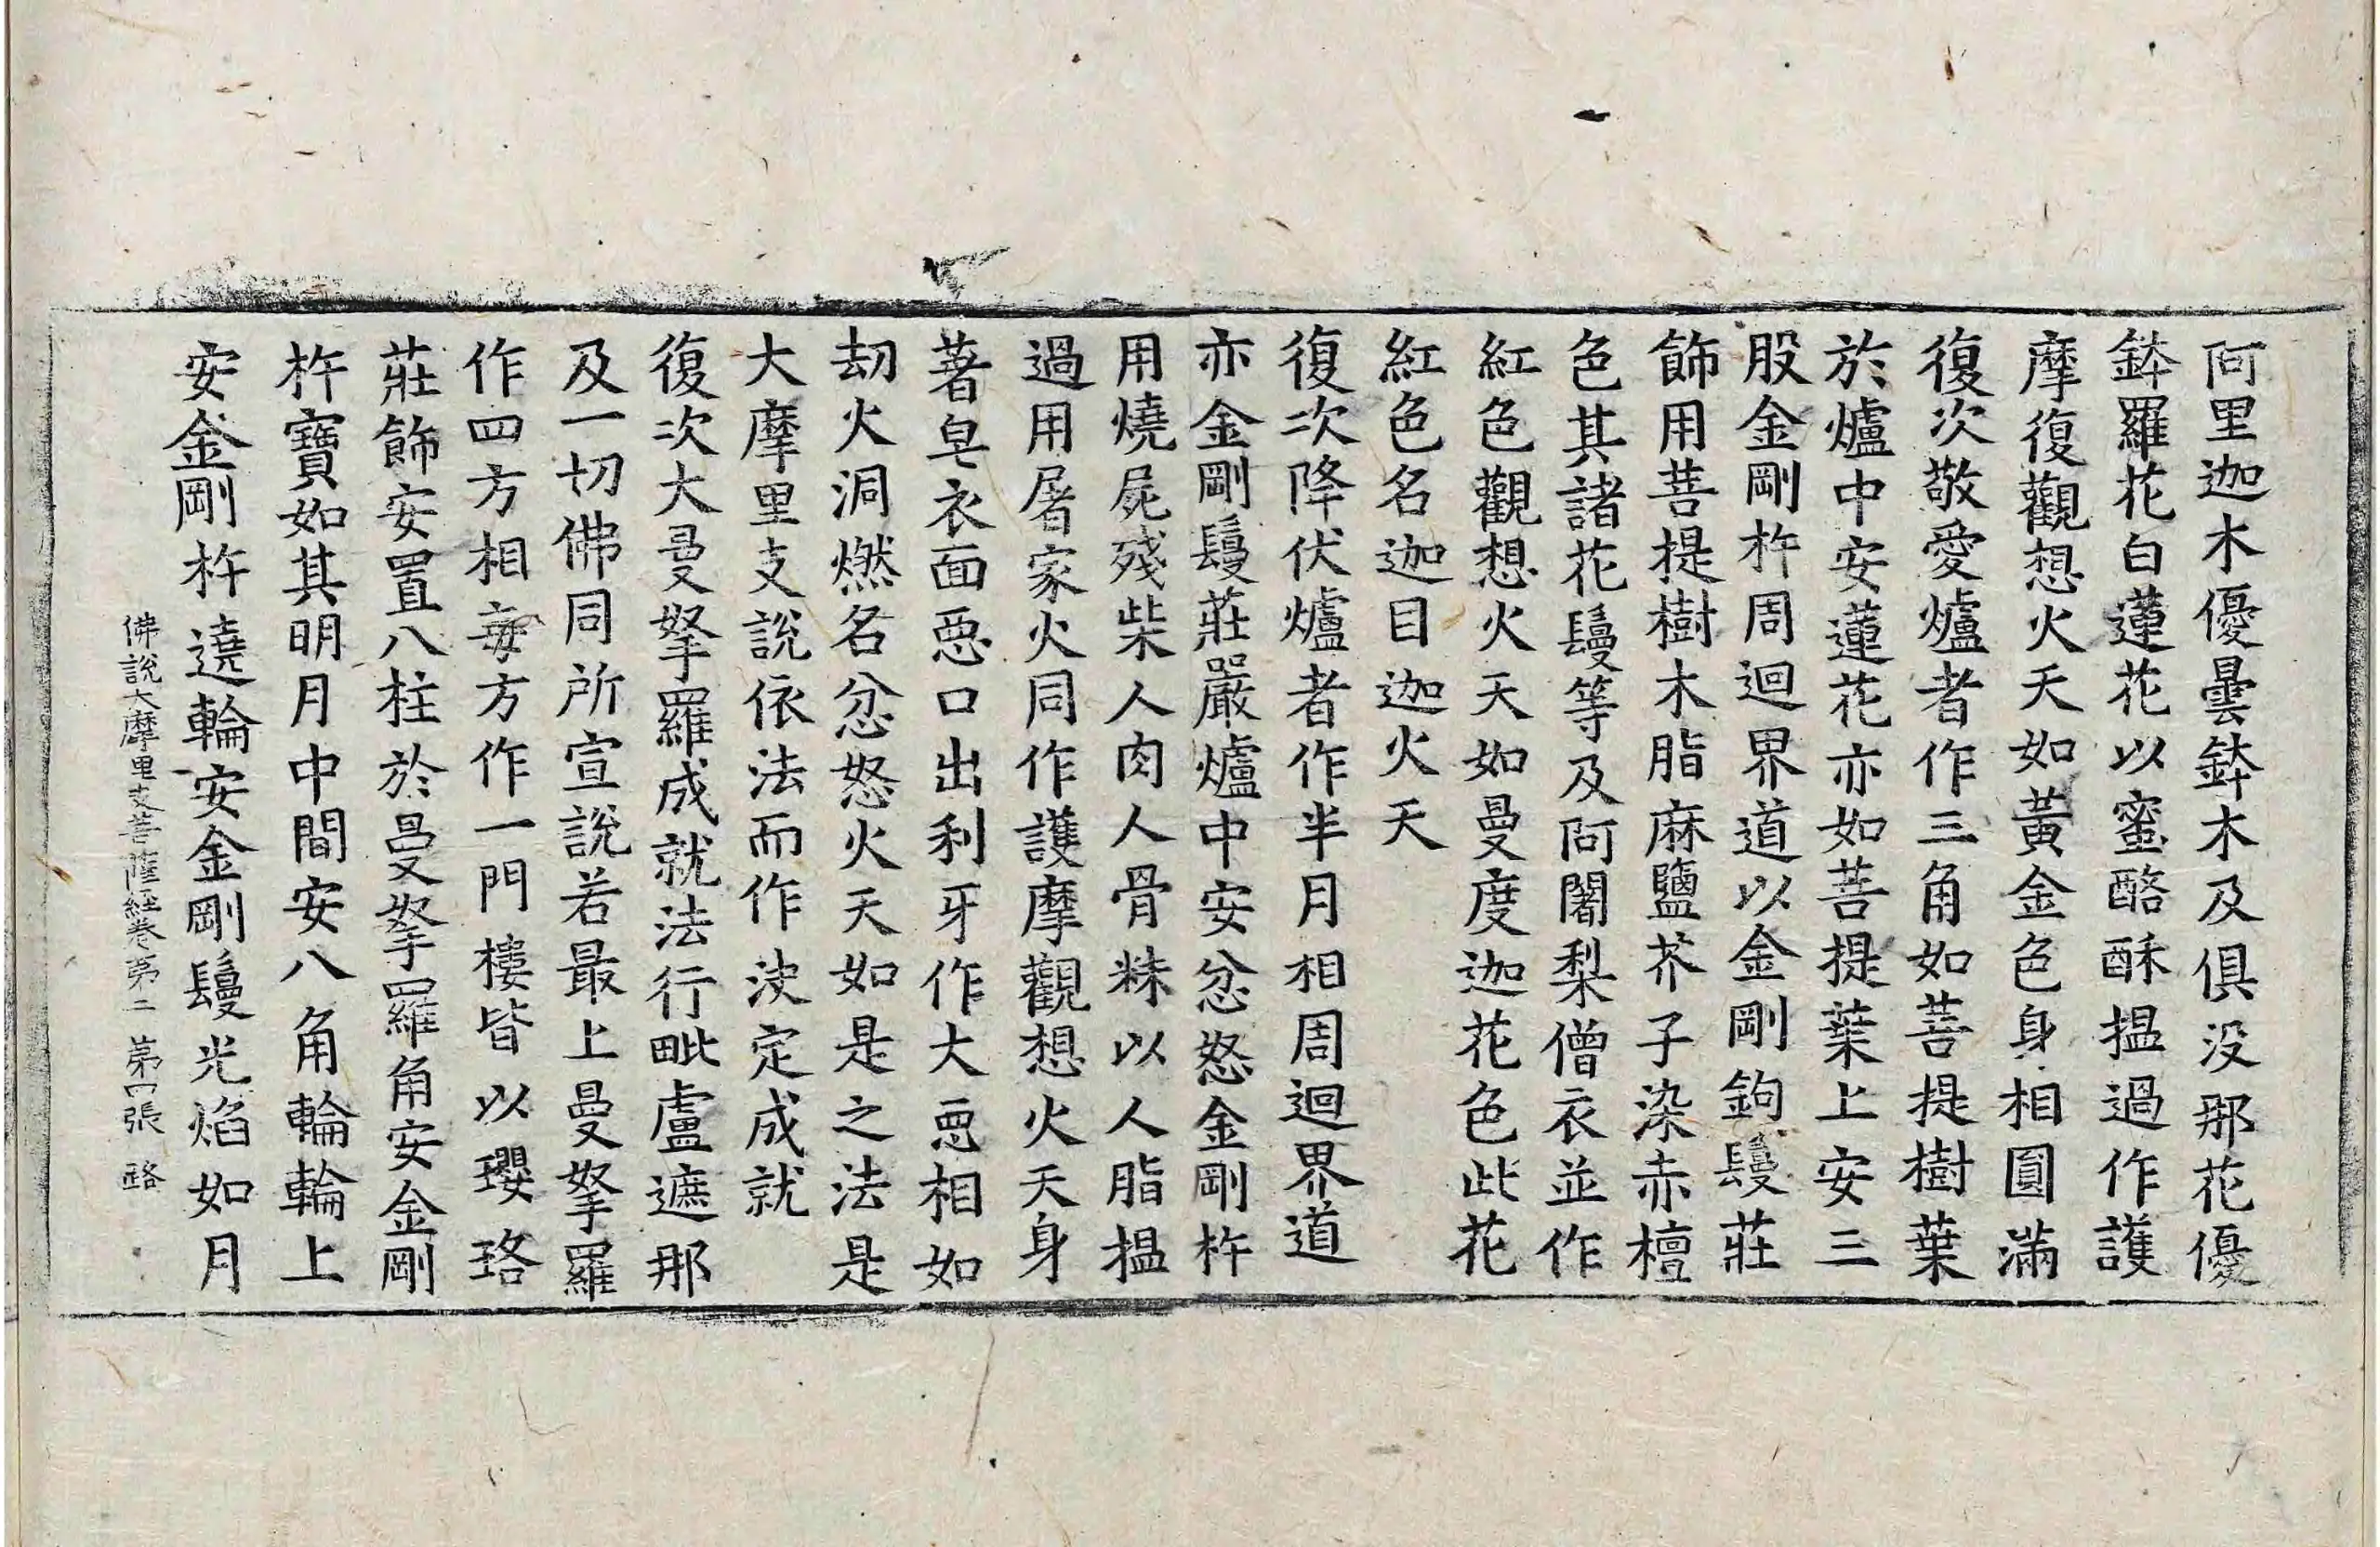 阿里迦木優曇鉢木及俱没那花優
鉢羅花白蓮花以蜜酪酥揾過作護
摩復觀想火天如黃金色身相圓滿
復次敬愛爐者作三角如菩提樹葉
於爐中安蓮花亦如菩提葉上安三
股金剛杵周迴界道以金剛鉤鬘莊
飾用菩提樹木脂麻鹽芥子染赤檀
色其諸花鬘等及阿闍梨僧衣並作
紅色觀想火天如曼度迦花色此花
紅色名迦目迦火天
復次降伏爐者作半月相周迴界道
亦金剛鬘莊嚴爐中安忿怒金剛杵
用燒屍殘柴人肉人骨粖以人脂揾
過用屠家火同作護摩觀想火天身
著皂衣面惡口出利牙作大惡相如
劫火洞燃名忿怒火天如是之法是
大摩里支說依法而作決定成就
復次大曼拏羅成就法行毗盧遮那
及一切佛同所宣說若最上曼拏羅
作四方相每方作一門樓皆以瓔珞
莊飾安置八柱於曼拏羅角安金剛
杵寶如其明月中間安八角輪輪上
安金剛杵遶輪安金剛鬘光焰如月
佛說大摩里支菩薩經卷第二 第四張 路